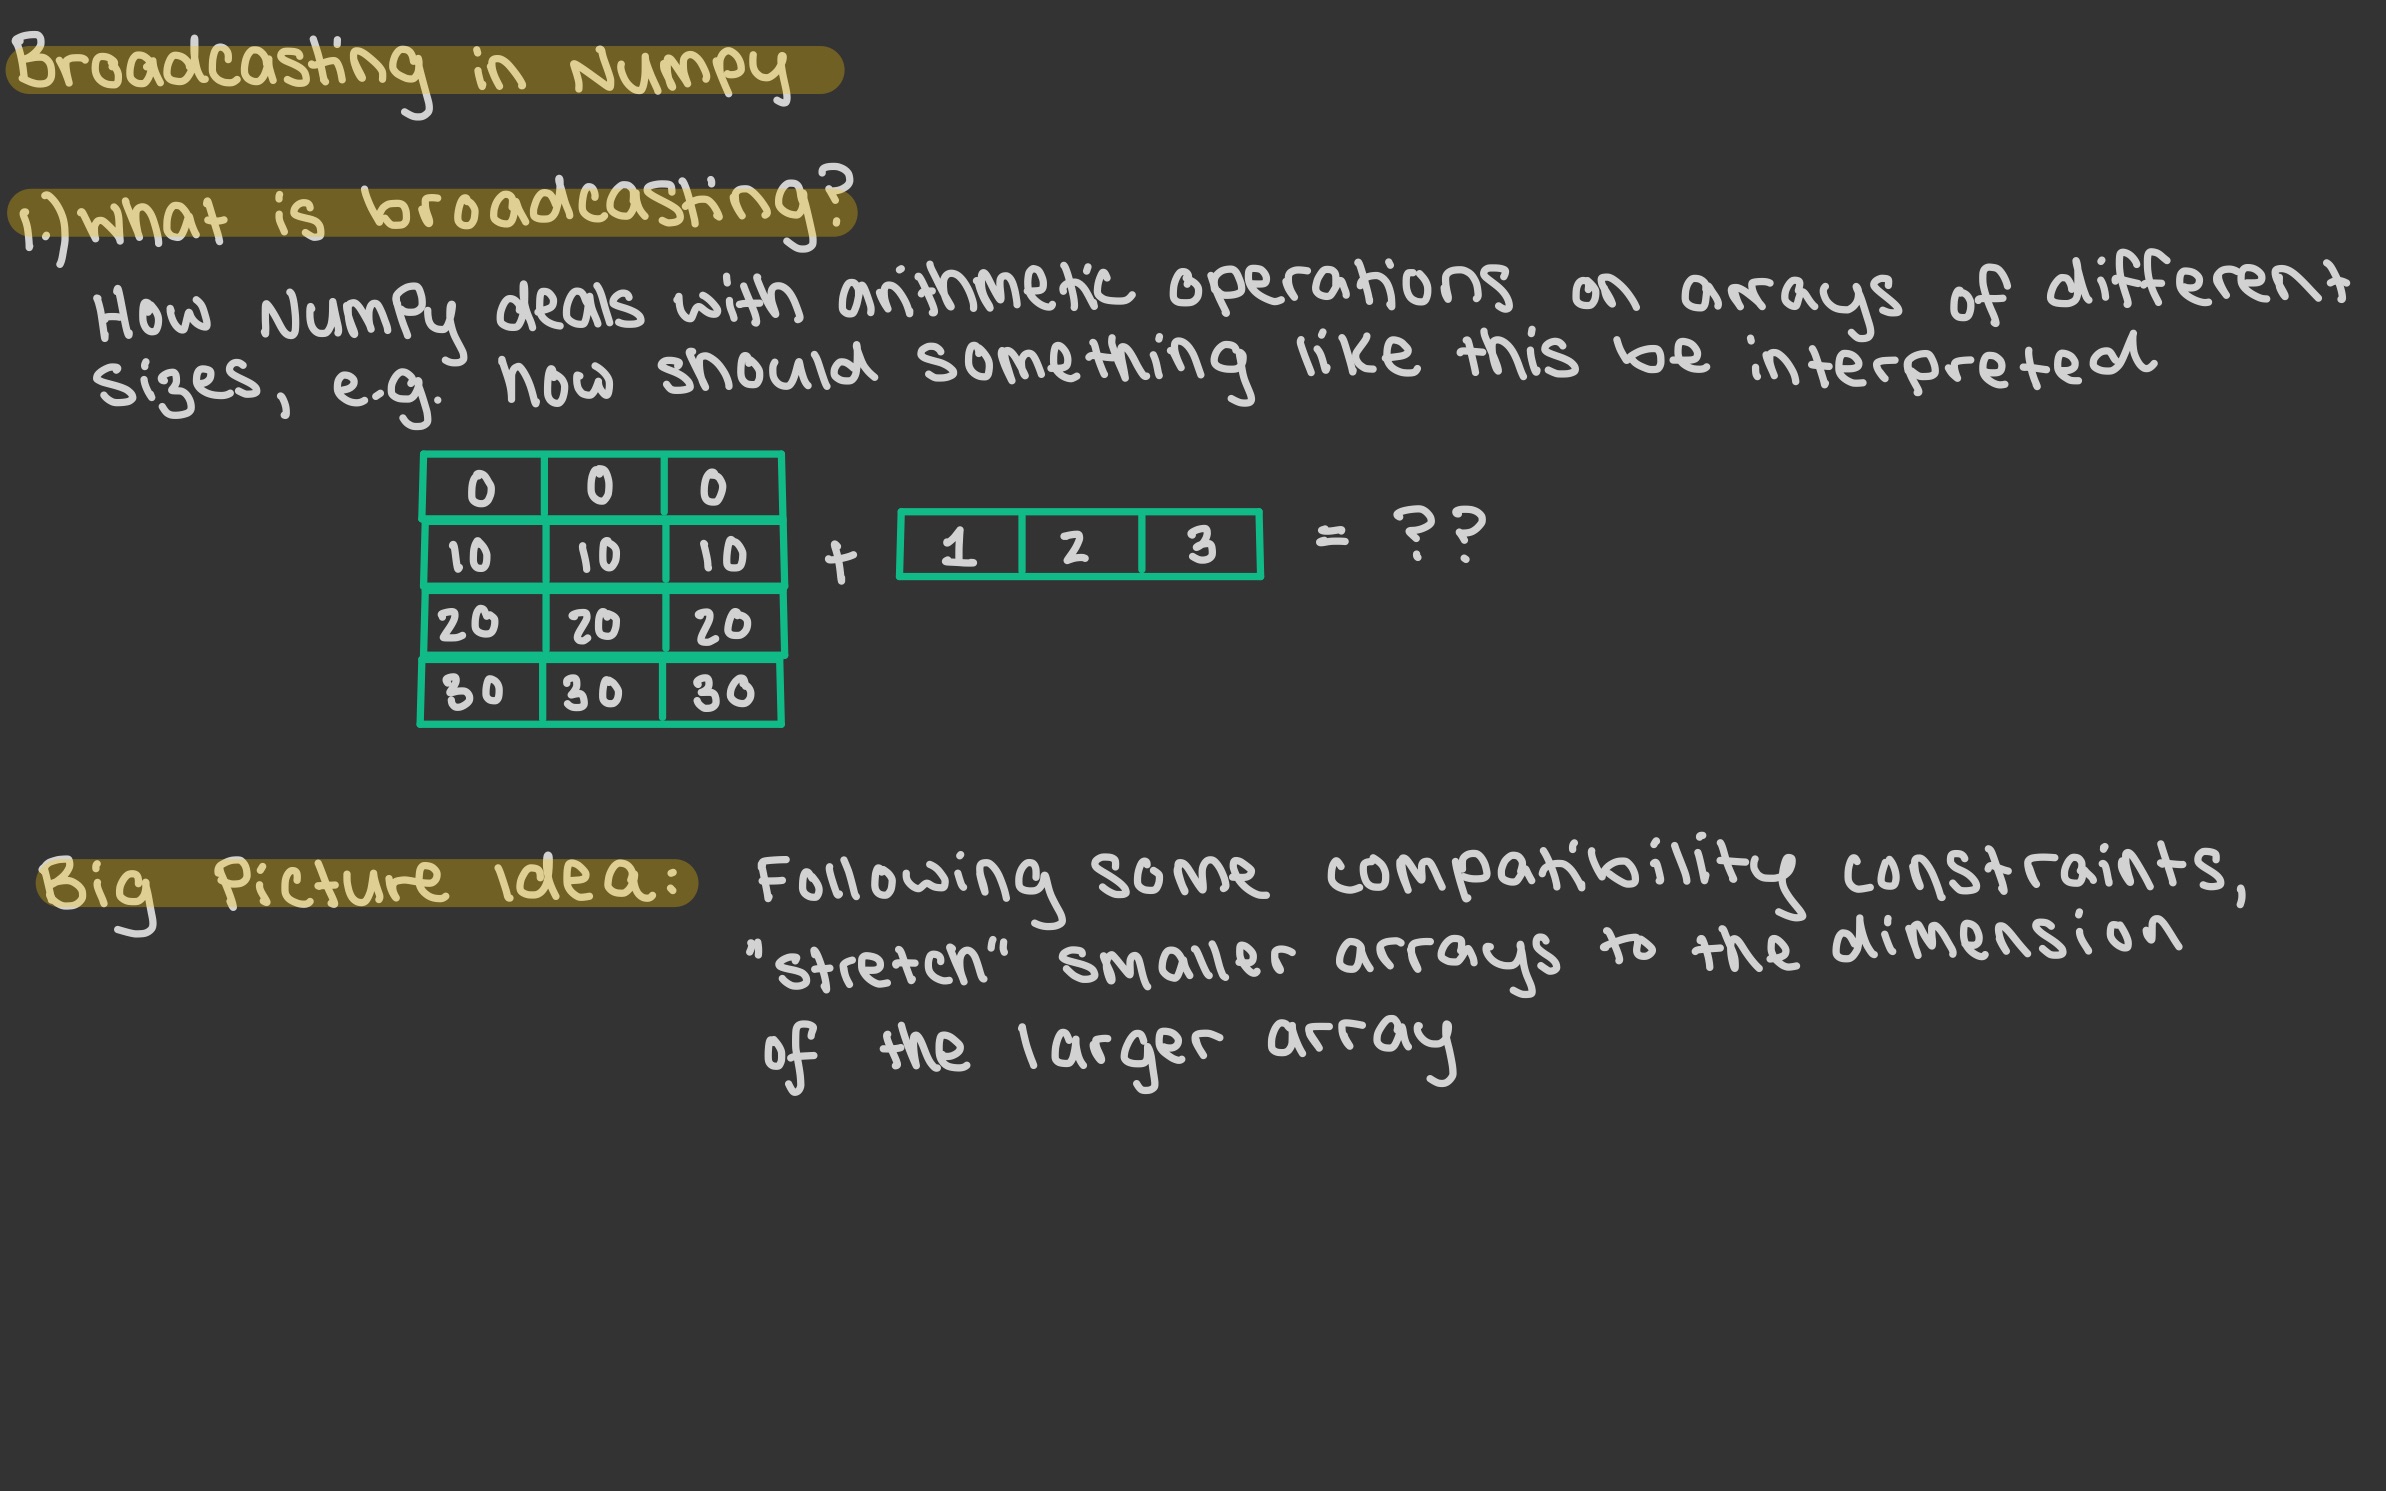 Broadcasting in Numpy
1.) What is broadcasting?
How NumPy deals with arithmetic operations on arrays of different
sizes, e.g. how should something like this be interpreted
0 0 0
10 10 10
+ 1 2 3 = ??
20 20 20
30 30 30
Big Picture Idea: Following some compatibility constraints,
"stretch" smaller arrays to the dimension
of the larger array